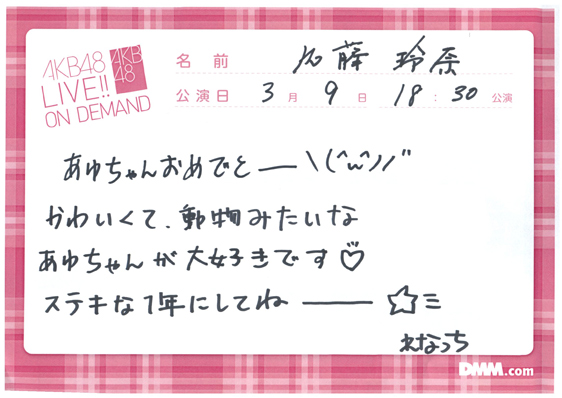 AKB48
LIVE!!
ON DEMAND
AKB
48
名前 加藤 玲奈
公演日 3月 9日 18:30 公演
あゆちゃんおめでとー\(^ω^)/〃
かわいくて、動物みたいな
あゆちゃんが大好きです♡
ステキな1年にしてね――☆ミ
れなっち
DMM.com